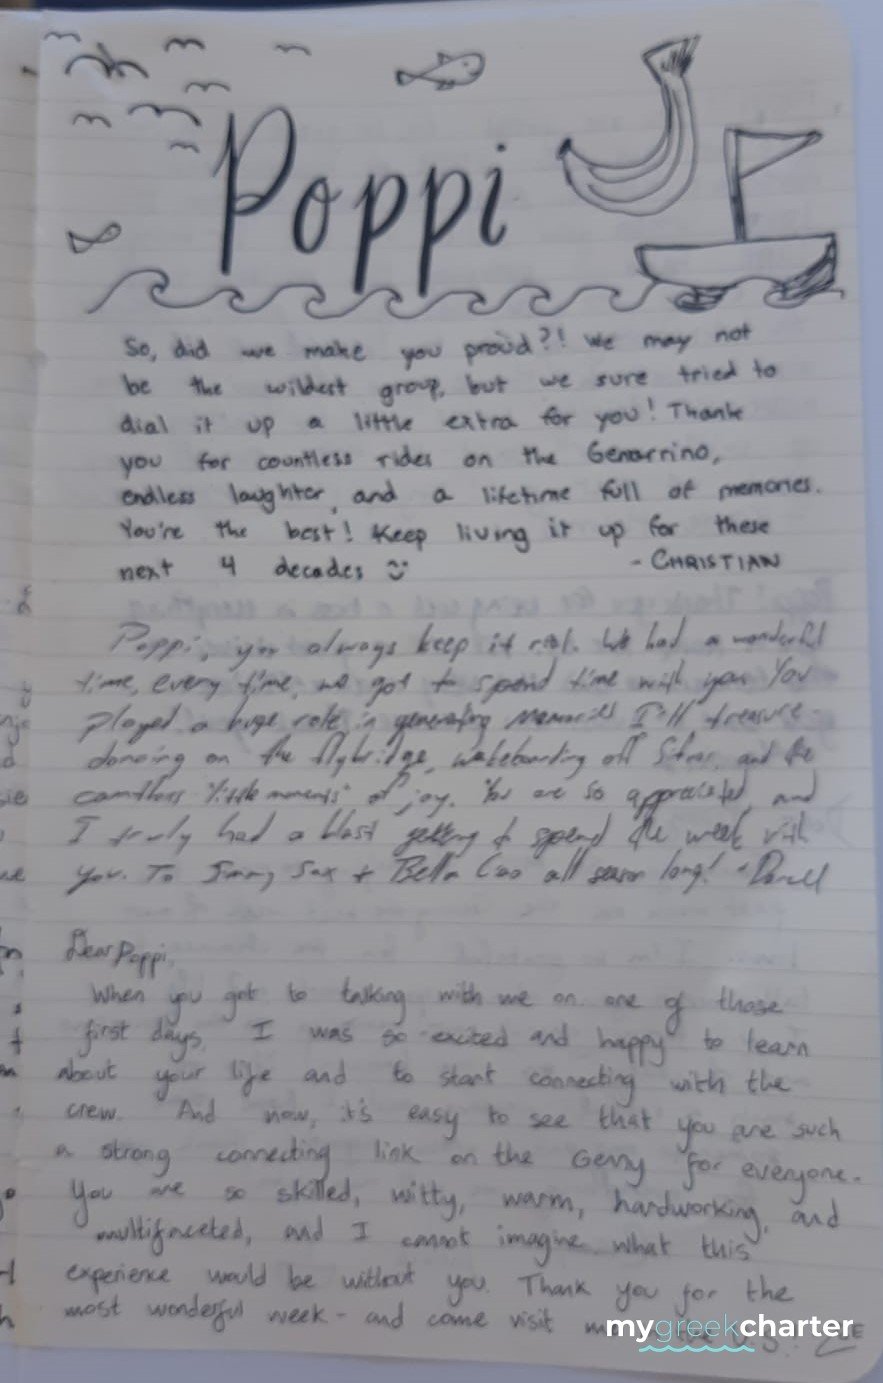 Poppi
So, did we make you proud?! We may not
be the wildest group, but we sure tried to
dial it up a little extra for you! Thank
you for countless rides on the Genarrino,
endless laughter, and a lifetime full of memories.
You're the best! Keep living it up for these
next 4 decades
- CHRISTIAN
Poppi, you always keep it real. We had a wonderful
time, every time, we got to spend time with you. You
played a huge role in generating memories I'll treasure -
dancing on the flybridge, wakeboarding off and the
countless "little moments" of joy. You are so appreciated, and
I truly had a blast getting to spend the week with
you. To Jimmy Sax + Bella Ciao all season long! -
Dear Poppi,
When you got to talking with me on one of those
first days, I was so excited and happy to learn
about your life and to start connecting with the
crew. And now, it's easy to see that you are such
a strong connecting link on the Genny for everyone.
You are so skilled, witty, warm, hardworking, and
multifaceted, and I cannot imagine what this
experience would be without you. Thank you for the
most wonderful week - and come visit
mygreekcharter